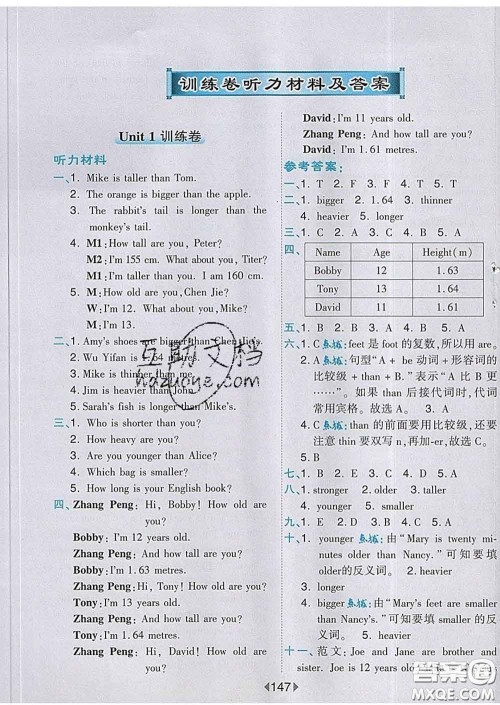 训练卷听力材料及答案
Unit 1 训练卷
听力材料
一、1. Mike is taller than Tom.
2. The orange is bigger than the apple.
3. The rabbit's tail is longer than the
monkey's tail.
4. M1: How tall are you, Peter?
M2: I'm 155 cm. What about you, Mike?
M1: I'm taller than you. I am 160 cm.
5. M: How old are you, Chen Jie?
W: I'm 12. What about you, Mike?
M: I'm 13.
二、1. Amy's shoes are bigger than Chen Jie's.
2. Wu Yifan is 1.64 metres.
3. Mike is thinner than me.
4. Jim is heavier than me.
5. Sarah's fish is longer than Mike's.
三、1. Who is shorter than you?
2. How heavy are you?
3. Are you younger than Alice?
4. Which bag is smaller?
5. How long is your English book?
四、Zhang Peng: Hi, Bobby! How old are
you?
Bobby: I'm 12 years old.
Zhang Peng: And how tall are you?
Bobby: I'm 1.63 metres.
Zhang Peng: Hi, Tony! How old are you?
Tony: I'm 13 years old.
Zhang Peng: And how tall are you?
Tony: I'm 1.64 metres.
Zhang Peng: Hi, David! How old are
you?
David: I'm 11 years old.
Zhang Peng: And how tall are you?
David: I'm 1.61 metres.
参考答案:
一、1. T 2. F 3. T 4. F 5. F
二、1. bigger 2. 1.64 3. thinner
4. heavier 5. longer
三、1. C 2. A 3. A 4. C 5. A
四、
Name Age Height(m)
Bobby 12 1.63
Tony 13 1.64
David 11 1.61
五、1. B 2. B 3. C 4. B 5. A
六、1. C 点拨: feet 是 foot 的复数,所以用 are。
2. A 点拨: 句型“A + be 动词 + 形容词
的比较级 + than + B.”表示“A 比 B 更
……”。如果 than 后接代词时,代词
常用宾格。故选 A。 3. A
4. B 点拨: than 的前面要用比较级,变化
thin 要双写 n,再加-er,故选 B。 5. A
七、1. B 2. E 3. D 4. A 5. C
八、1. stronger 2. older 3. taller
4. smaller 5. younger
九、1. C 2. E 3. D 4. A 5. B
十、1. younger 点拨: 由“Mary is twenty mi-
nutes older than Nancy.”可知要填
older 的反义词。 2. heavier 3. longer
4. bigger 点拨: 由“Mary's feet are smaller
than Nancy's.”可知要填 smaller
的反义词。 5. heavier
十一、范文: Joe and Jane are brother and
sister. Joe is 12 years old
147
互助文档
hazuoye.com
答案圈
MXQE.COM